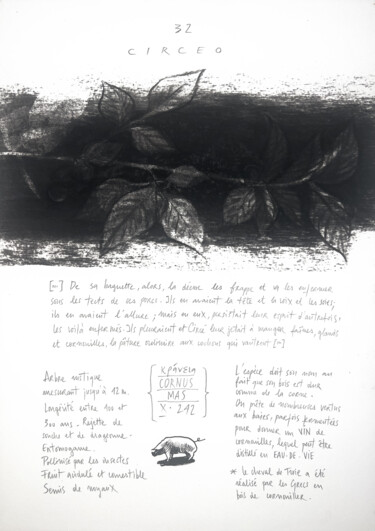 32
CIRCEO
[...] De sa baguette, alors, la déesse les frappe et va les enfermer
sous les tects de ses porcs. Ils en avaient la tête et la voix et les soies;
ils en avaient l'allure; mais en eux, persistait leur esprit d'autrefois,
les voilà enfermés. Ils pleuraient et Circé leur jetait à manger, faînes, glands
et cornouilles, la pâture ordinaire aux cochons qui vautrent [...]
Arbre rustique
mesurant jusqu'à 12 m.
Longévité entre 100 et
300 ans. Rejette de
souche et de drageons.
Entomogame.
Pollinisé par les insectes
Fruit acidulé et comestible
Semis de noyaux
ΚΡΆΝΕΙΑ
CORNUS
MAS
X. 242
L'espèce doit son nom au
fait que son bois est dur
comme de la corne.
On prête de nombreuses vertus
aux baies, parfois fermentées
pour donner un VIN de
cornouilles, lequel peut être
distillé en EAU-DE-VIE
* le cheval de Troie a été
réalisé par les Grecs en
bois de cornouiller.